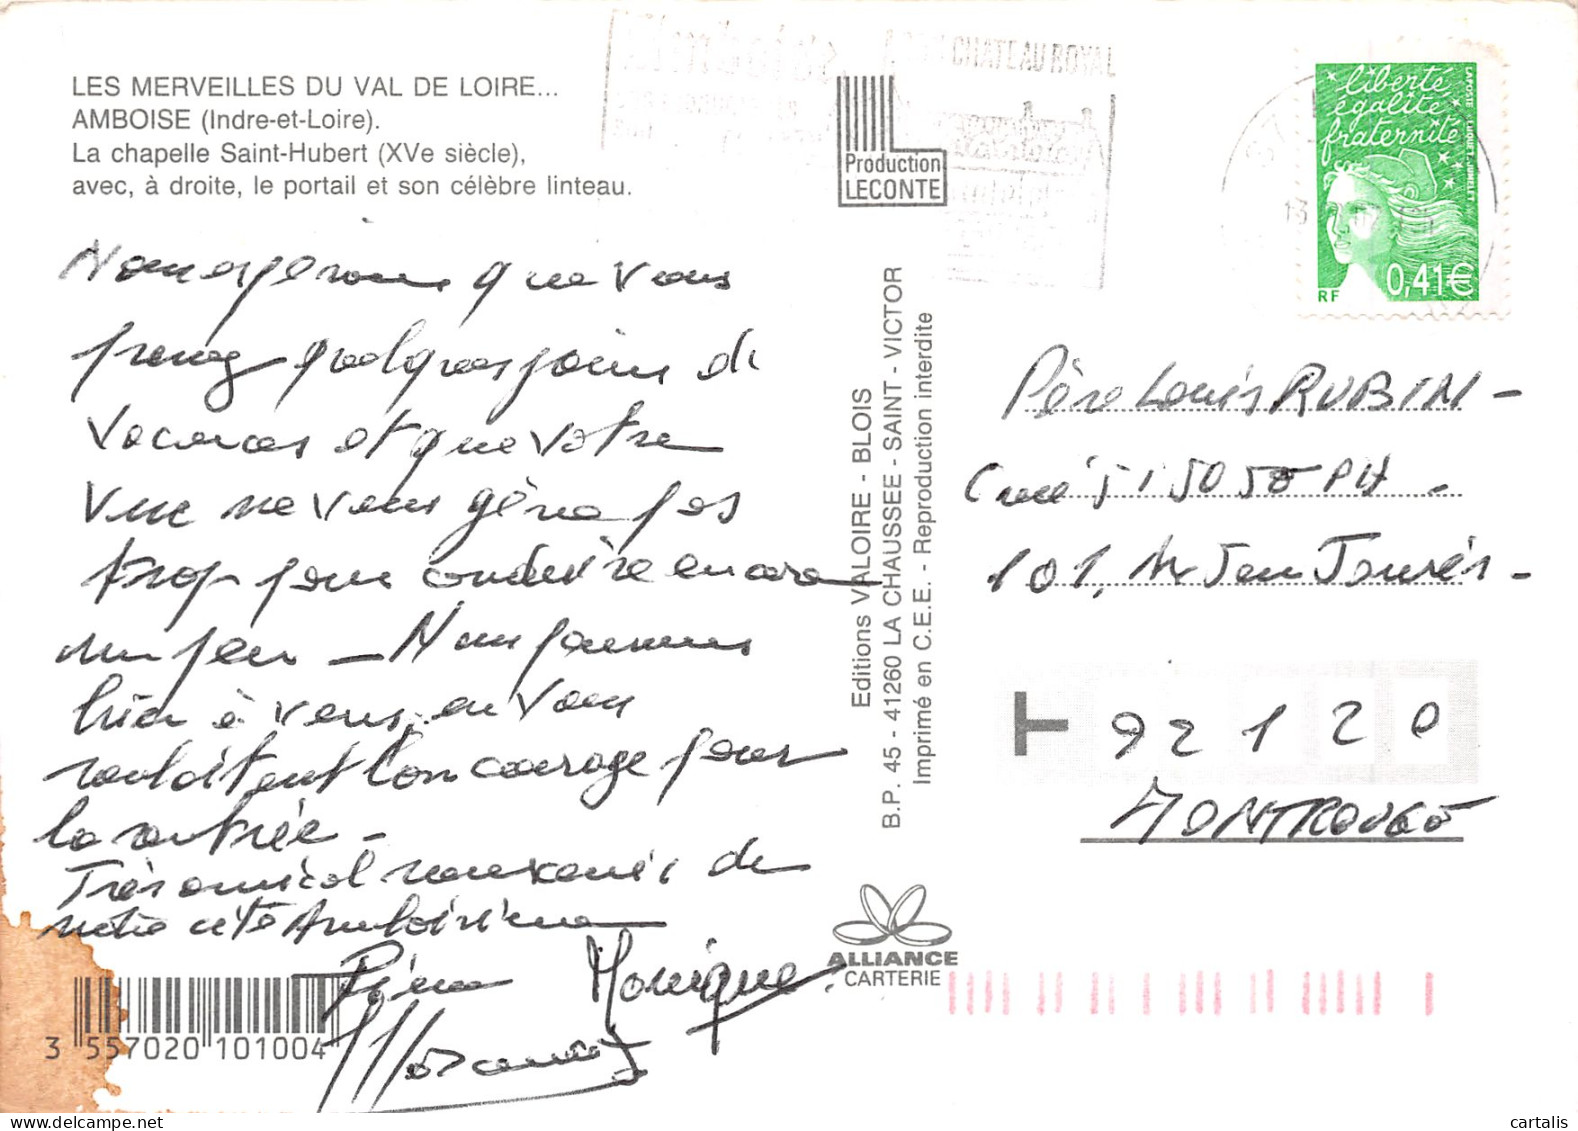 LES MERVEILLES DU VAL DE LOIRE...
AMBOISE (Indre-et-Loire).
La chapelle Saint-Hubert (XVe siècle),
avec, à droite, le portail et son célèbre linteau.
Nous espérons que vous
prenez quelques jours de
vacances et que votre
vue ne vous gêne pas
trop pour conduire encore
un peu _ Nous pensions
hier à vous, en vous
souhaitant bon courage pour
la rentrée -
Très amical souvenir de
notre cité Amboisienne
Pierre Monique
3 557020 101004
Production
LECONTE
Editions VALOIRE - BLOIS
B.P. 45 - 41260 LA CHAUSSEE - SAINT - VICTOR
Imprimé en C.E.E. - Reproduction interdite
ALLIANCE
CARTERIE
CHATEAU ROYAL
liberté
égalité
fraternité
LA POSTE
RF
0,41€
Père Louis RUBIN -
101, Av Jean Jaurés -
T 92120
MONTROUGE
cartalis